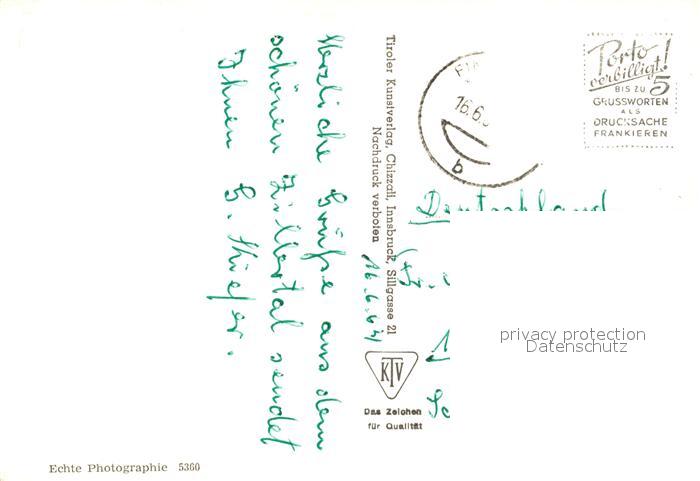 Herzliche Grüße aus dem
schönen Zillertal sendet
Ihnen
Tiroler Kunstverlag, Chizzali, Innsbruck, Sillgasse 21
Nachdruck verboten
16.6.64
KTV
Das Zeichen
für Qualität
16.6.
b
Porto
verbilligt!
BIS ZU 5
GRUSSWORTEN
ALS
DRUCKSACHE
FRANKIEREN
Deutschland
privacy protection
Datenschutz
Echte Photographie 5360